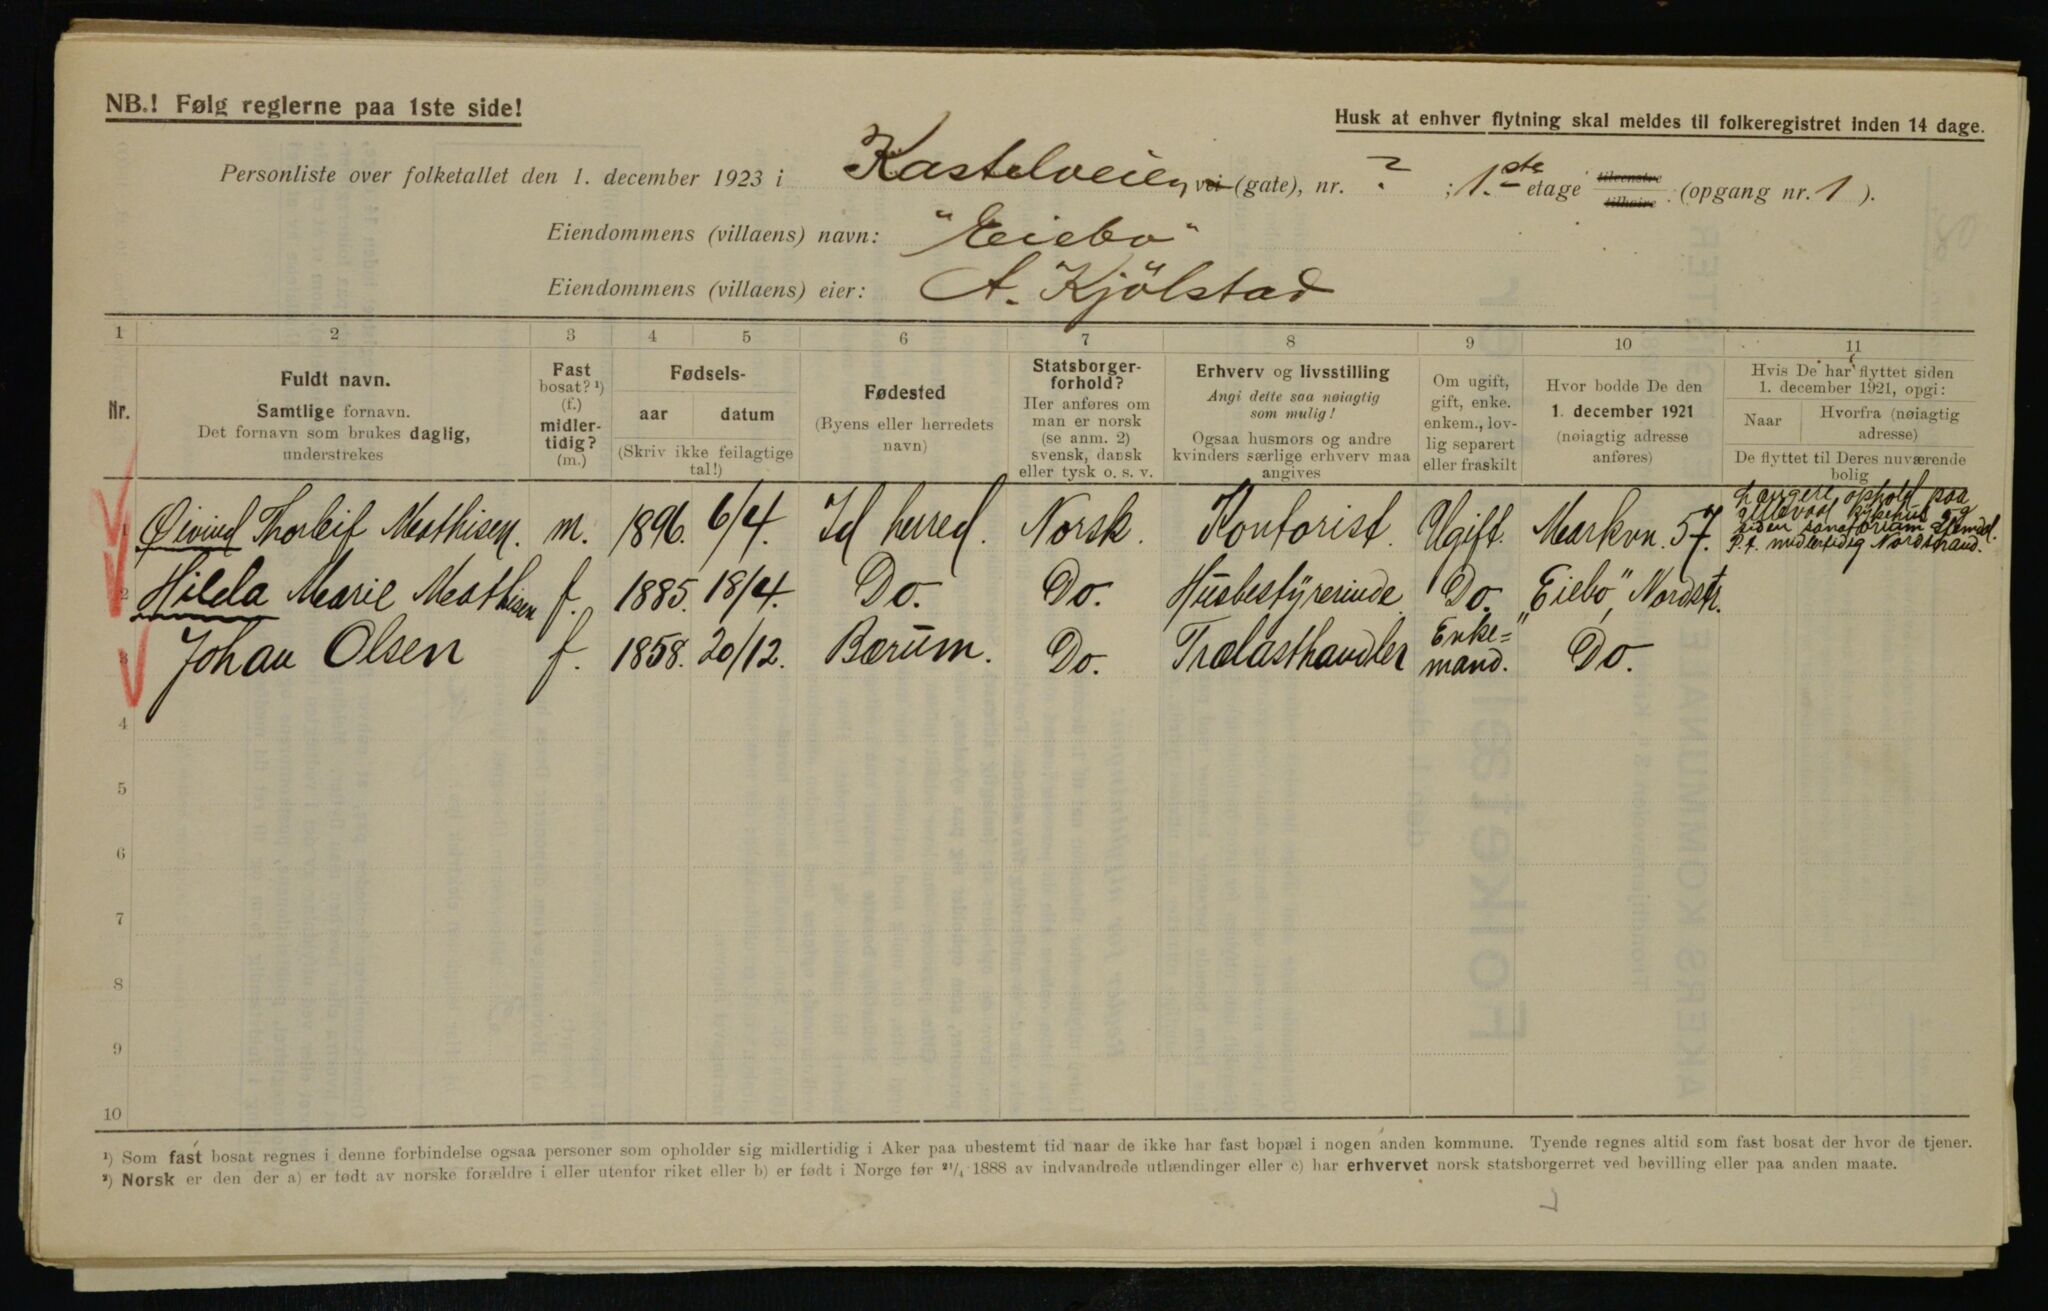 NB.! Følg reglerne paa 1ste side!
Husk at enhver flytning skal meldes til folkeregistret inden 14 dage.
Personliste over folketallet den 1. december 1923 i Kastelveien, vei (gate), nr. ? ; 1.ste etage tilvenstre tilhøire (opgang nr. 1 ).
Eiendommens (villaens) navn: "Eiebo"
Eiendommens (villaens) eier: A. Kjölstad
1 2 3 4 5 6 7 8 9 10 11
Nr.
Fuldt navn.
Samtlige fornavn.
Det fornavn som brukes daglig,
understrekes
Fast
bosat? ¹)
(f.)
midler-
tidig?
(m.)
Fødsels-
aar datum
(Skriv ikke feilagtige
tal!)
Fødested
(Byens eller herredets
navn)
Statsborger-
forhold?
Her anføres om
man er norsk
(se anm. 2)
svensk, dansk
eller tysk o. s. v.
Erhverv og livsstilling
Angi dette saa nøiagtig
som mulig!
Ogsaa husmors og andre
kvinders særlige erhverv maa
angives
Om ugift,
gift, enke.
enkem., lov-
lig separert
eller fraskilt
Hvor bodde De den
1. december 1921
(nøiagtig adresse
anføres)
Hvis De har flyttet siden
1. december 1921, opgi:
Naar
Hvorfra (nøiagtig
adresse)
De flyttet til Deres nuværende
bolig
1 Øivind Thorleif Mathisen. m. 1896. 6/4. Id herred. Norsk. Kontorist. Ugift. Markvn. 57. Længere ophold paa
sykehus og
siden sanatorium
P. t. midlertidig Nordstrand.
2 Hilda Marie Mathisen f. 1885. 18/4. Do. Do. Husbestyrerinde. Do. "Eiebo", Nordstr.
3 Johan Olsen f. 1858. 20/12. Bærum. Do. Trælasthandler Enke=
mand. Do.
4
5
6
7
8
9
10
¹) Som fast bosat regnes i denne forbindelse ogsaa personer som opholder sig midlertidig i Aker paa ubestemt tid naar de ikke har fast bopæl i nogen anden kommune. Tyende regnes altid som fast bosat der hvor de tjener.
²) Norsk er den der a) er født av norske forældre i eller utenfor riket eller b) er født i Norge før ²¹/₄ 1888 av indvandrede utlændinger eller c) har erhvervet norsk statsborgerret ved bevilling eller paa anden maate.